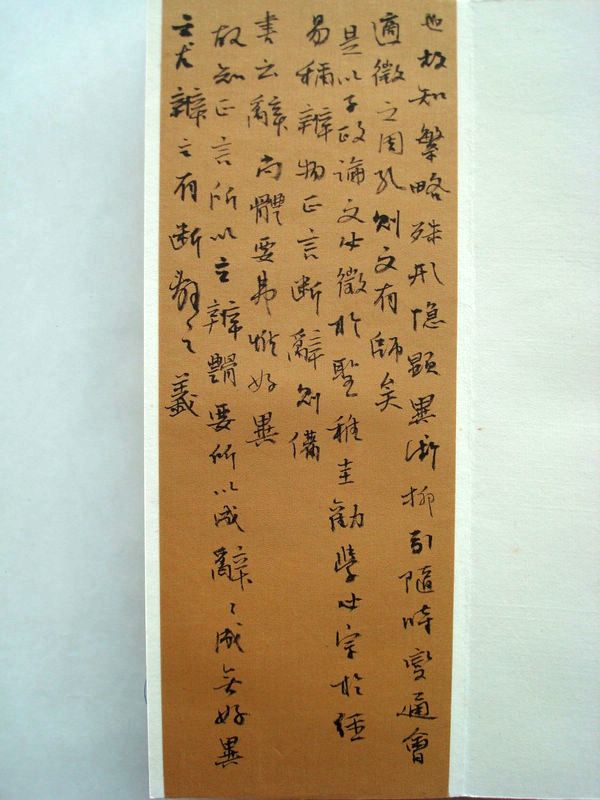 也故知繁略殊形隱顯異術抑引隨時變通會
適徵之周孔則文有師矣
是以子政論文必徵於聖稚圭勸學必宗於經
易稱辨物正言斷辭則備
書云辭尚體要弗惟好異
故知正言所以立辨體要所以成辭々成無好異
之尤辨立有斷辭之義